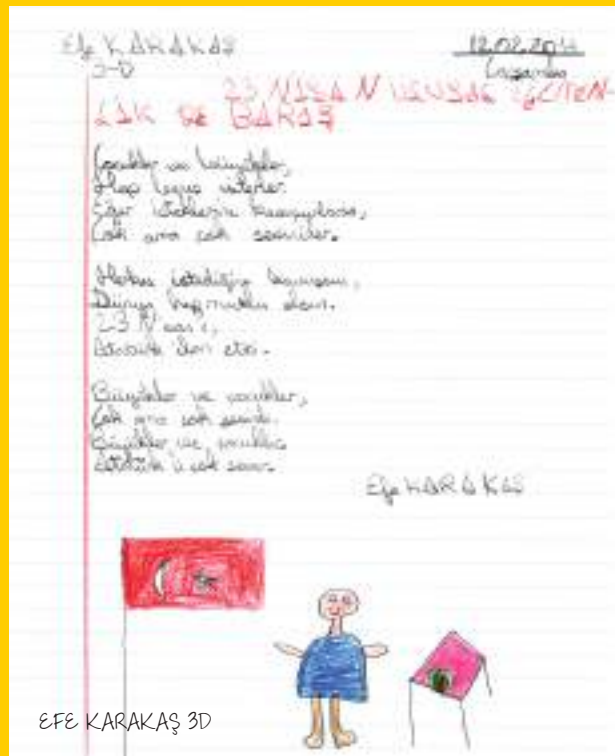 Efe KARAKAŞ
3-D
12.02.2014
Çarşamba
23 NİSAN ULUSAL EGEMEN-
LİK VE BARIŞ
Çocuklar ve büyükler,
Hep barış isterler.
Eğer isteklerine kavuşurlarsa,
Çok ama çok sevinirler.
Herkes istediğine kavuşsun,
Dünya hep mutlu olsun.
23 Nisan'ı,
Atatürk ilan etti.
Büyükler ve çocuklar,
Çok ama çok
Büyükler ve çocuklar
Atatürk'ü çok sever.
Efe KARAKAŞ
EFE KARAKAŞ 3D